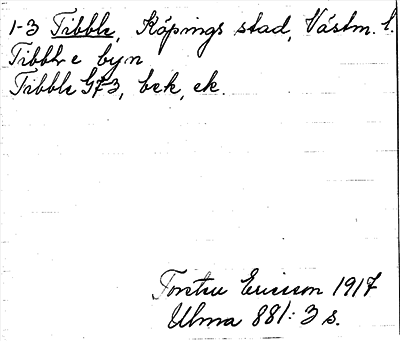 1-3 Tibble, Köpings stad, Västm. l.
Tibble byn
Tibble G73, bek, ek.
Torsten Ericson 1917
Ulma 881: 3 s.